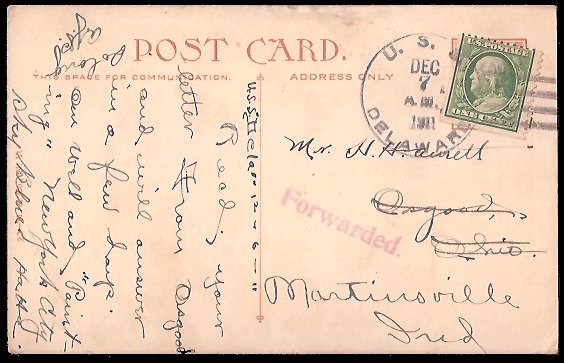 POST CARD.
THIS SPACE FOR COMMUNICATION.
ADDRESS ONLY
U. S. S.
DEC
7
A.M.
1911
DELAWARE
U.S. POSTAGE
ONE CENT
Mr. H. H.
Osgood,
Ohio.
Forwarded.
Martinsville
Ind
U.S.S. Del. 12-6-11
Recd. your
letter from Osgood
and will answer
in a few days.
am well and "Paint-
ing" New York City